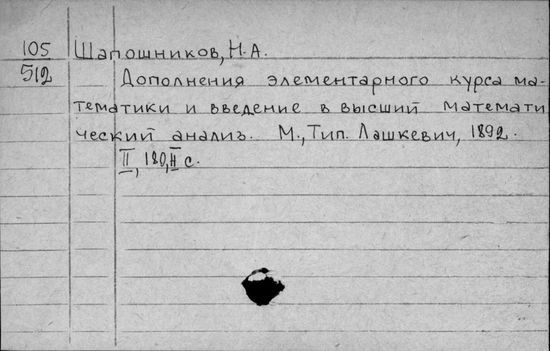 105 Шапошников, Н.А.
512 Дополнения элементарного курса ма-
тематики и введение в высший математи
ческий анализ. М., Тип. Лашкевич, 1892.
II, 180, II с.